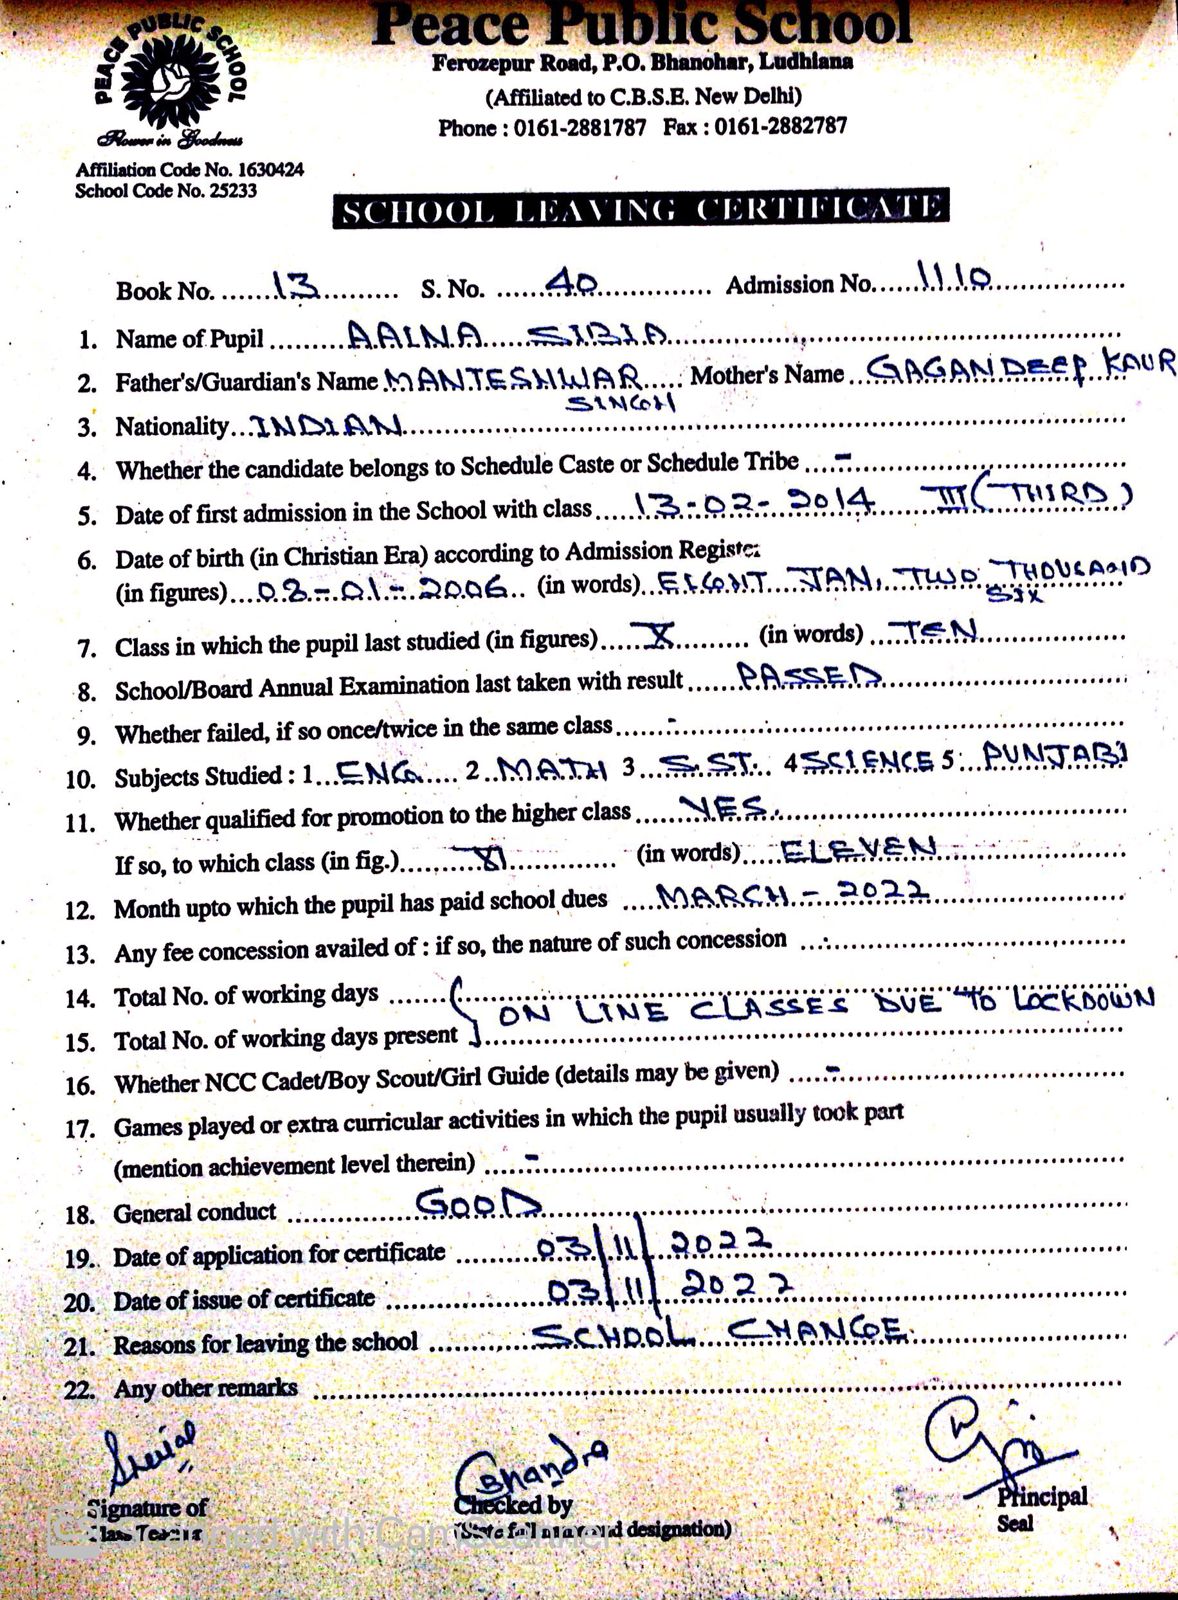 PEACE PUBLIC SCHOOL
Flower in Goodness
Affiliation Code No. 1630424
School Code No. 25233
Peace Public School
Ferozepur Road, P.O. Bhanohar, Ludhiana
(Affiliated to C.B.S.E. New Delhi)
Phone : 0161-2881787 Fax : 0161-2882787
SCHOOL LEAVING CERTIFICATE
Book No. 13 S. No. 40 Admission No. 1110
1. Name of Pupil AAINA SIBIA
2. Father's/Guardian's Name MANTESHWAR SINGH Mother's Name GAGANDEEP KAUR
3. Nationality INDIAN
4. Whether the candidate belongs to Schedule Caste or Schedule Tribe -
5. Date of first admission in the School with class 13-02-2014 III (THIRD)
6. Date of birth (in Christian Era) according to Admission Register
(in figures) 08-01-2006 (in words) EIGHT JAN, TWO THOUSAND SIX
7. Class in which the pupil last studied (in figures) X (in words) TEN
8. School/Board Annual Examination last taken with result PASSED
9. Whether failed, if so once/twice in the same class -
10. Subjects Studied : 1 ENG 2 MATH 3 S.ST. 4 SCIENCE 5 PUNJABI
11. Whether qualified for promotion to the higher class YES
If so, to which class (in fig.) XI (in words) ELEVEN
12. Month upto which the pupil has paid school dues MARCH - 2022
13. Any fee concession availed of : if so, the nature of such concession
14. Total No. of working days
ON LINE CLASSES DUE TO LOCKDOWN
15. Total No. of working days present
16. Whether NCC Cadet/Boy Scout/Girl Guide (details may be given) -
17. Games played or extra curricular activities in which the pupil usually took part
(mention achievement level therein) -
18. General conduct GOOD
19. Date of application for certificate 03/11/2022
20. Date of issue of certificate 03/11/2022
21. Reasons for leaving the school SCHOOL CHANGE
22. Any other remarks
Chandra
Signature of Checked by Principal
Class Teacher (State full name and designation) Seal